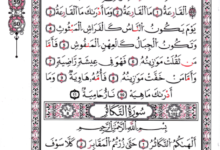 ٱلْقَارِعَةُ ۝ مَا ٱلْقَارِعَةُ ۝ وَمَآ أَدْرَىٰكَ مَا ٱلْقَارِعَةُ ۝
يَوْمَ يَكُونُ ٱلنَّاسُ كَٱلْفَرَاشِ ٱلْمَبْثُوثِ ۝
وَتَكُونُ ٱلْجِبَالُ كَٱلْعِهْنِ ٱلْمَنفُوشِ ۝ فَأَمَّا مَن
ثَقُلَتْ مَوَٰزِينُهُۥ ۝ فَهُوَ فِى عِيشَةٍ رَّاضِيَةٍ ۝
وَأَمَّا مَنْ خَفَّتْ مَوَٰزِينُهُۥ ۝ فَأُمُّهُۥ هَاوِيَةٌ ۝ وَمَآ
أَدْرَىٰكَ مَا هِيَهْ ۝ نَارٌ حَامِيَةٌۢ ۝
سُورَةُ التَّكَاثُرِ
بِسْمِ ٱللَّهِ ٱلرَّحْمَٰنِ ٱلرَّحِيمِ
أَلْهَىٰكُمُ ٱلتَّكَاثُرُ ۝ حَتَّىٰ زُرْتُمُ ٱلْمَقَابِرَ ۝ كَلَّا سَوْفَ